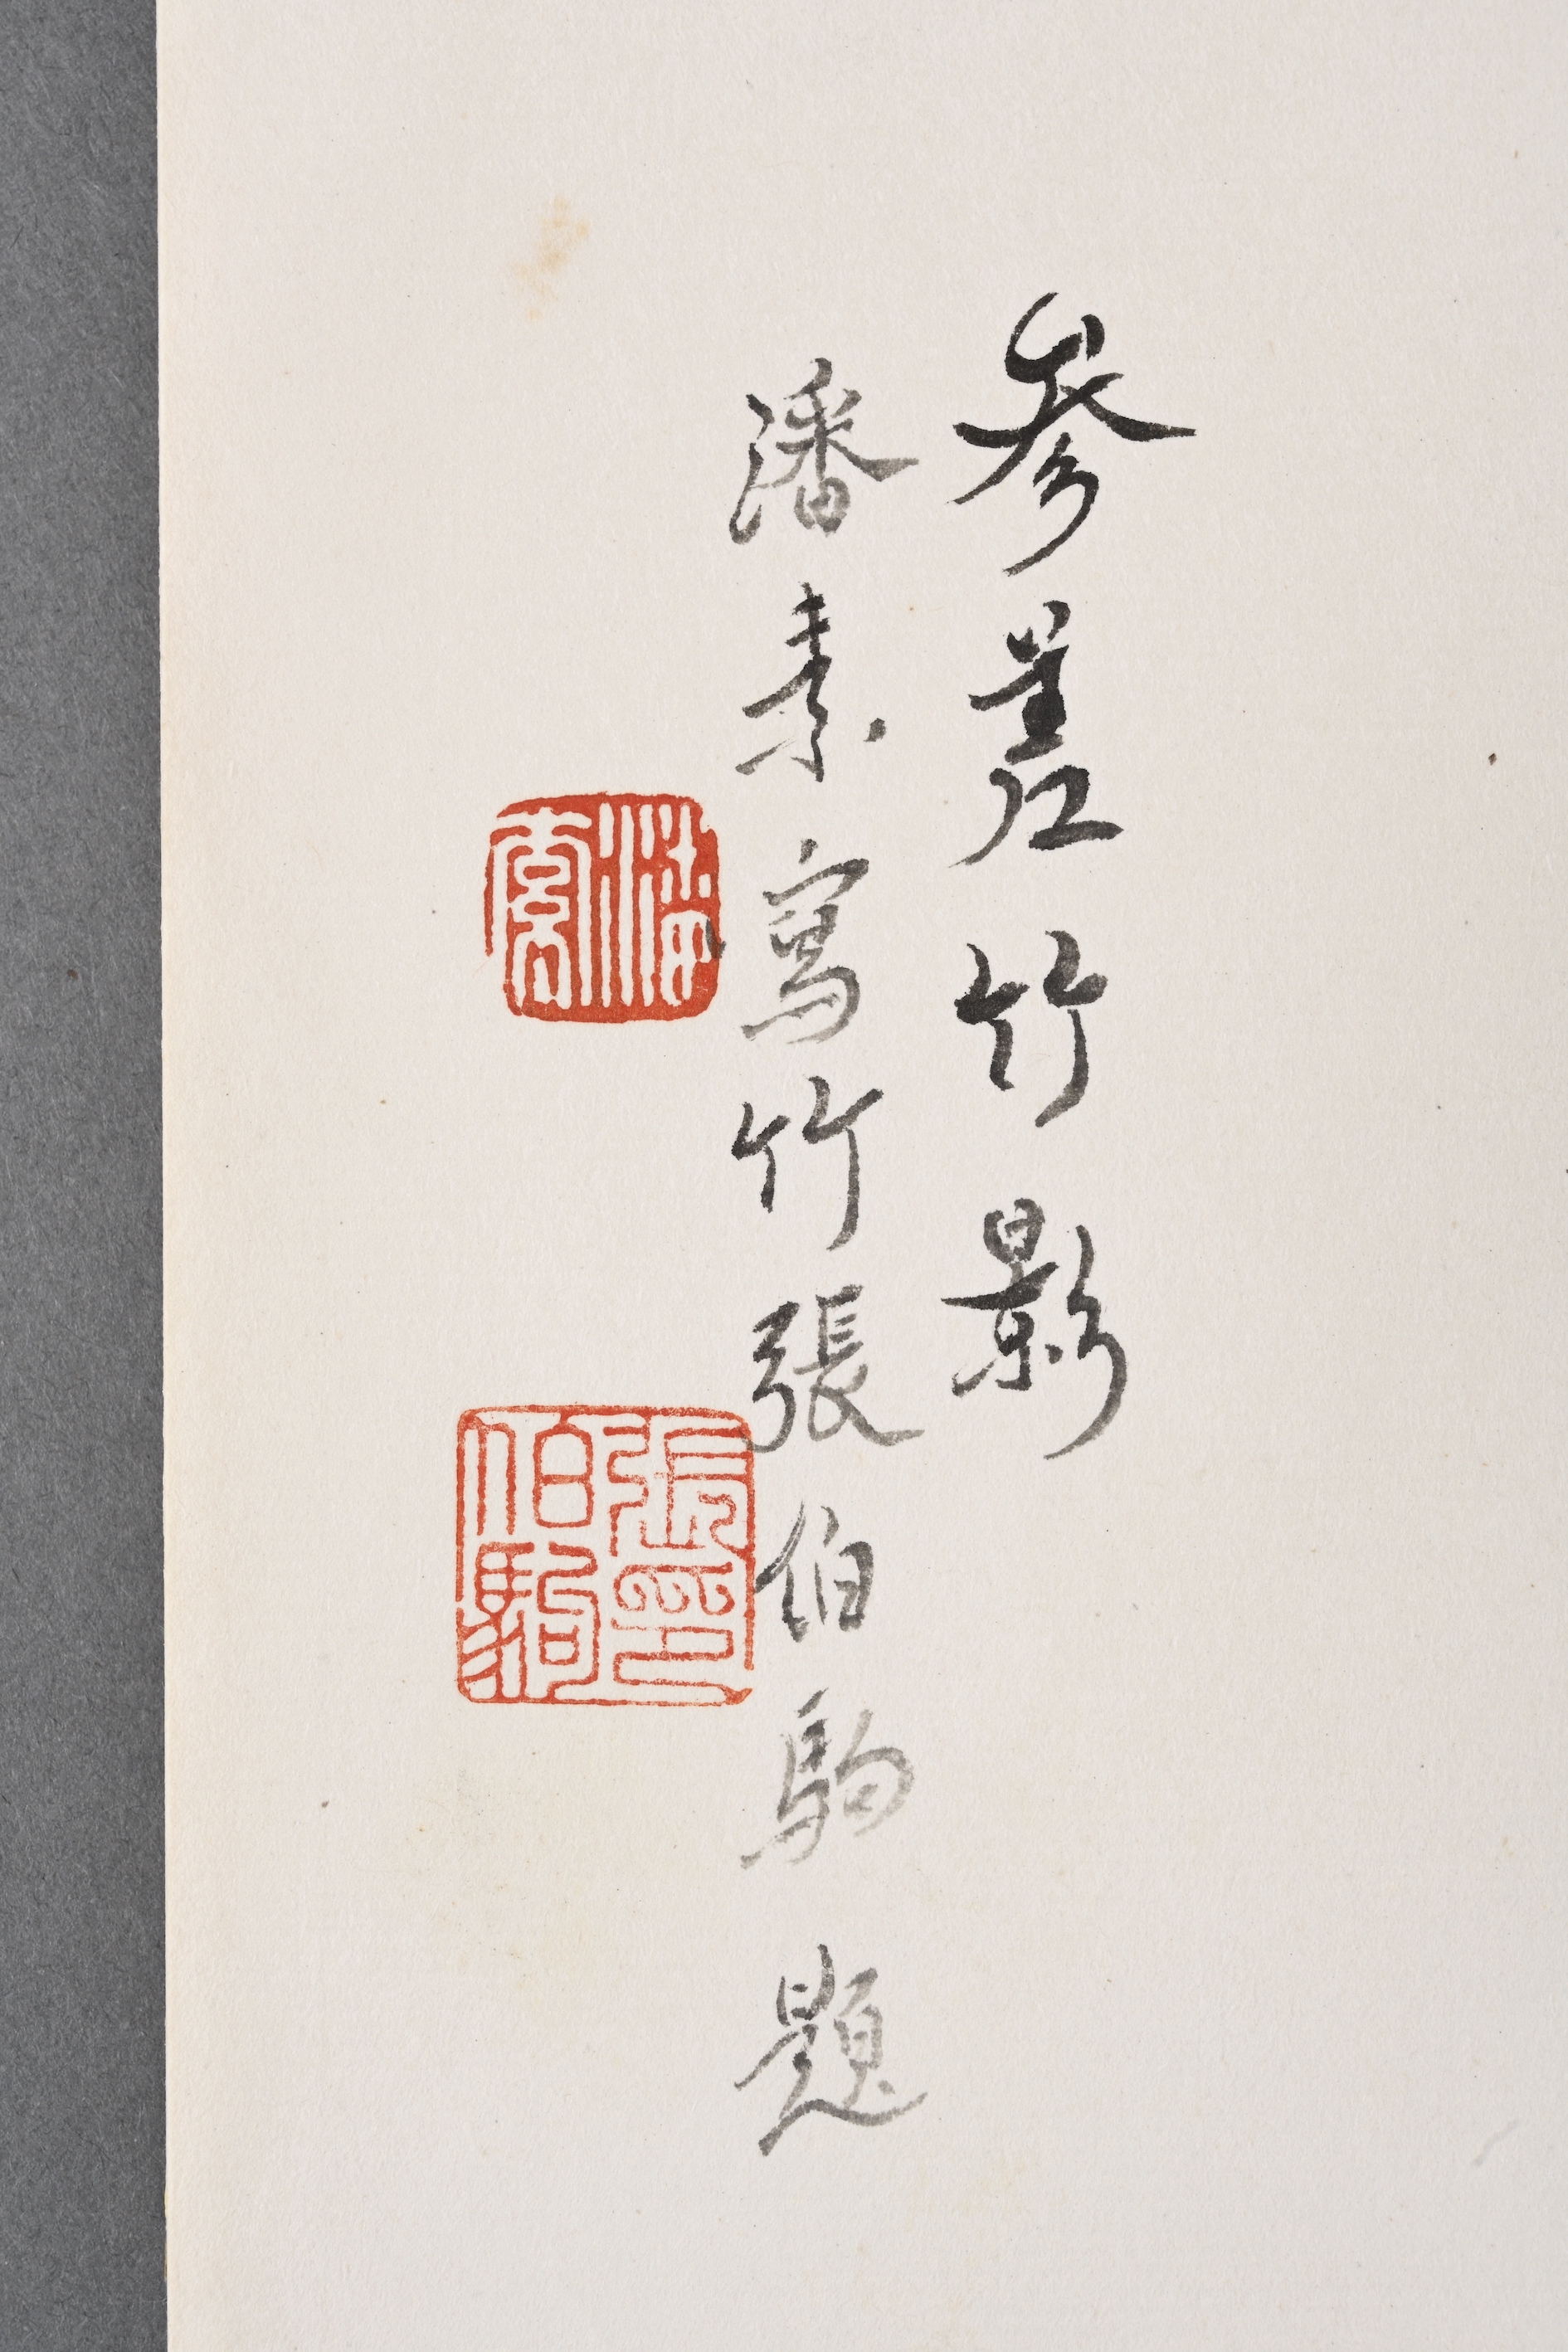 参差竹影
潘素寫竹張伯駒題
張印伯駒